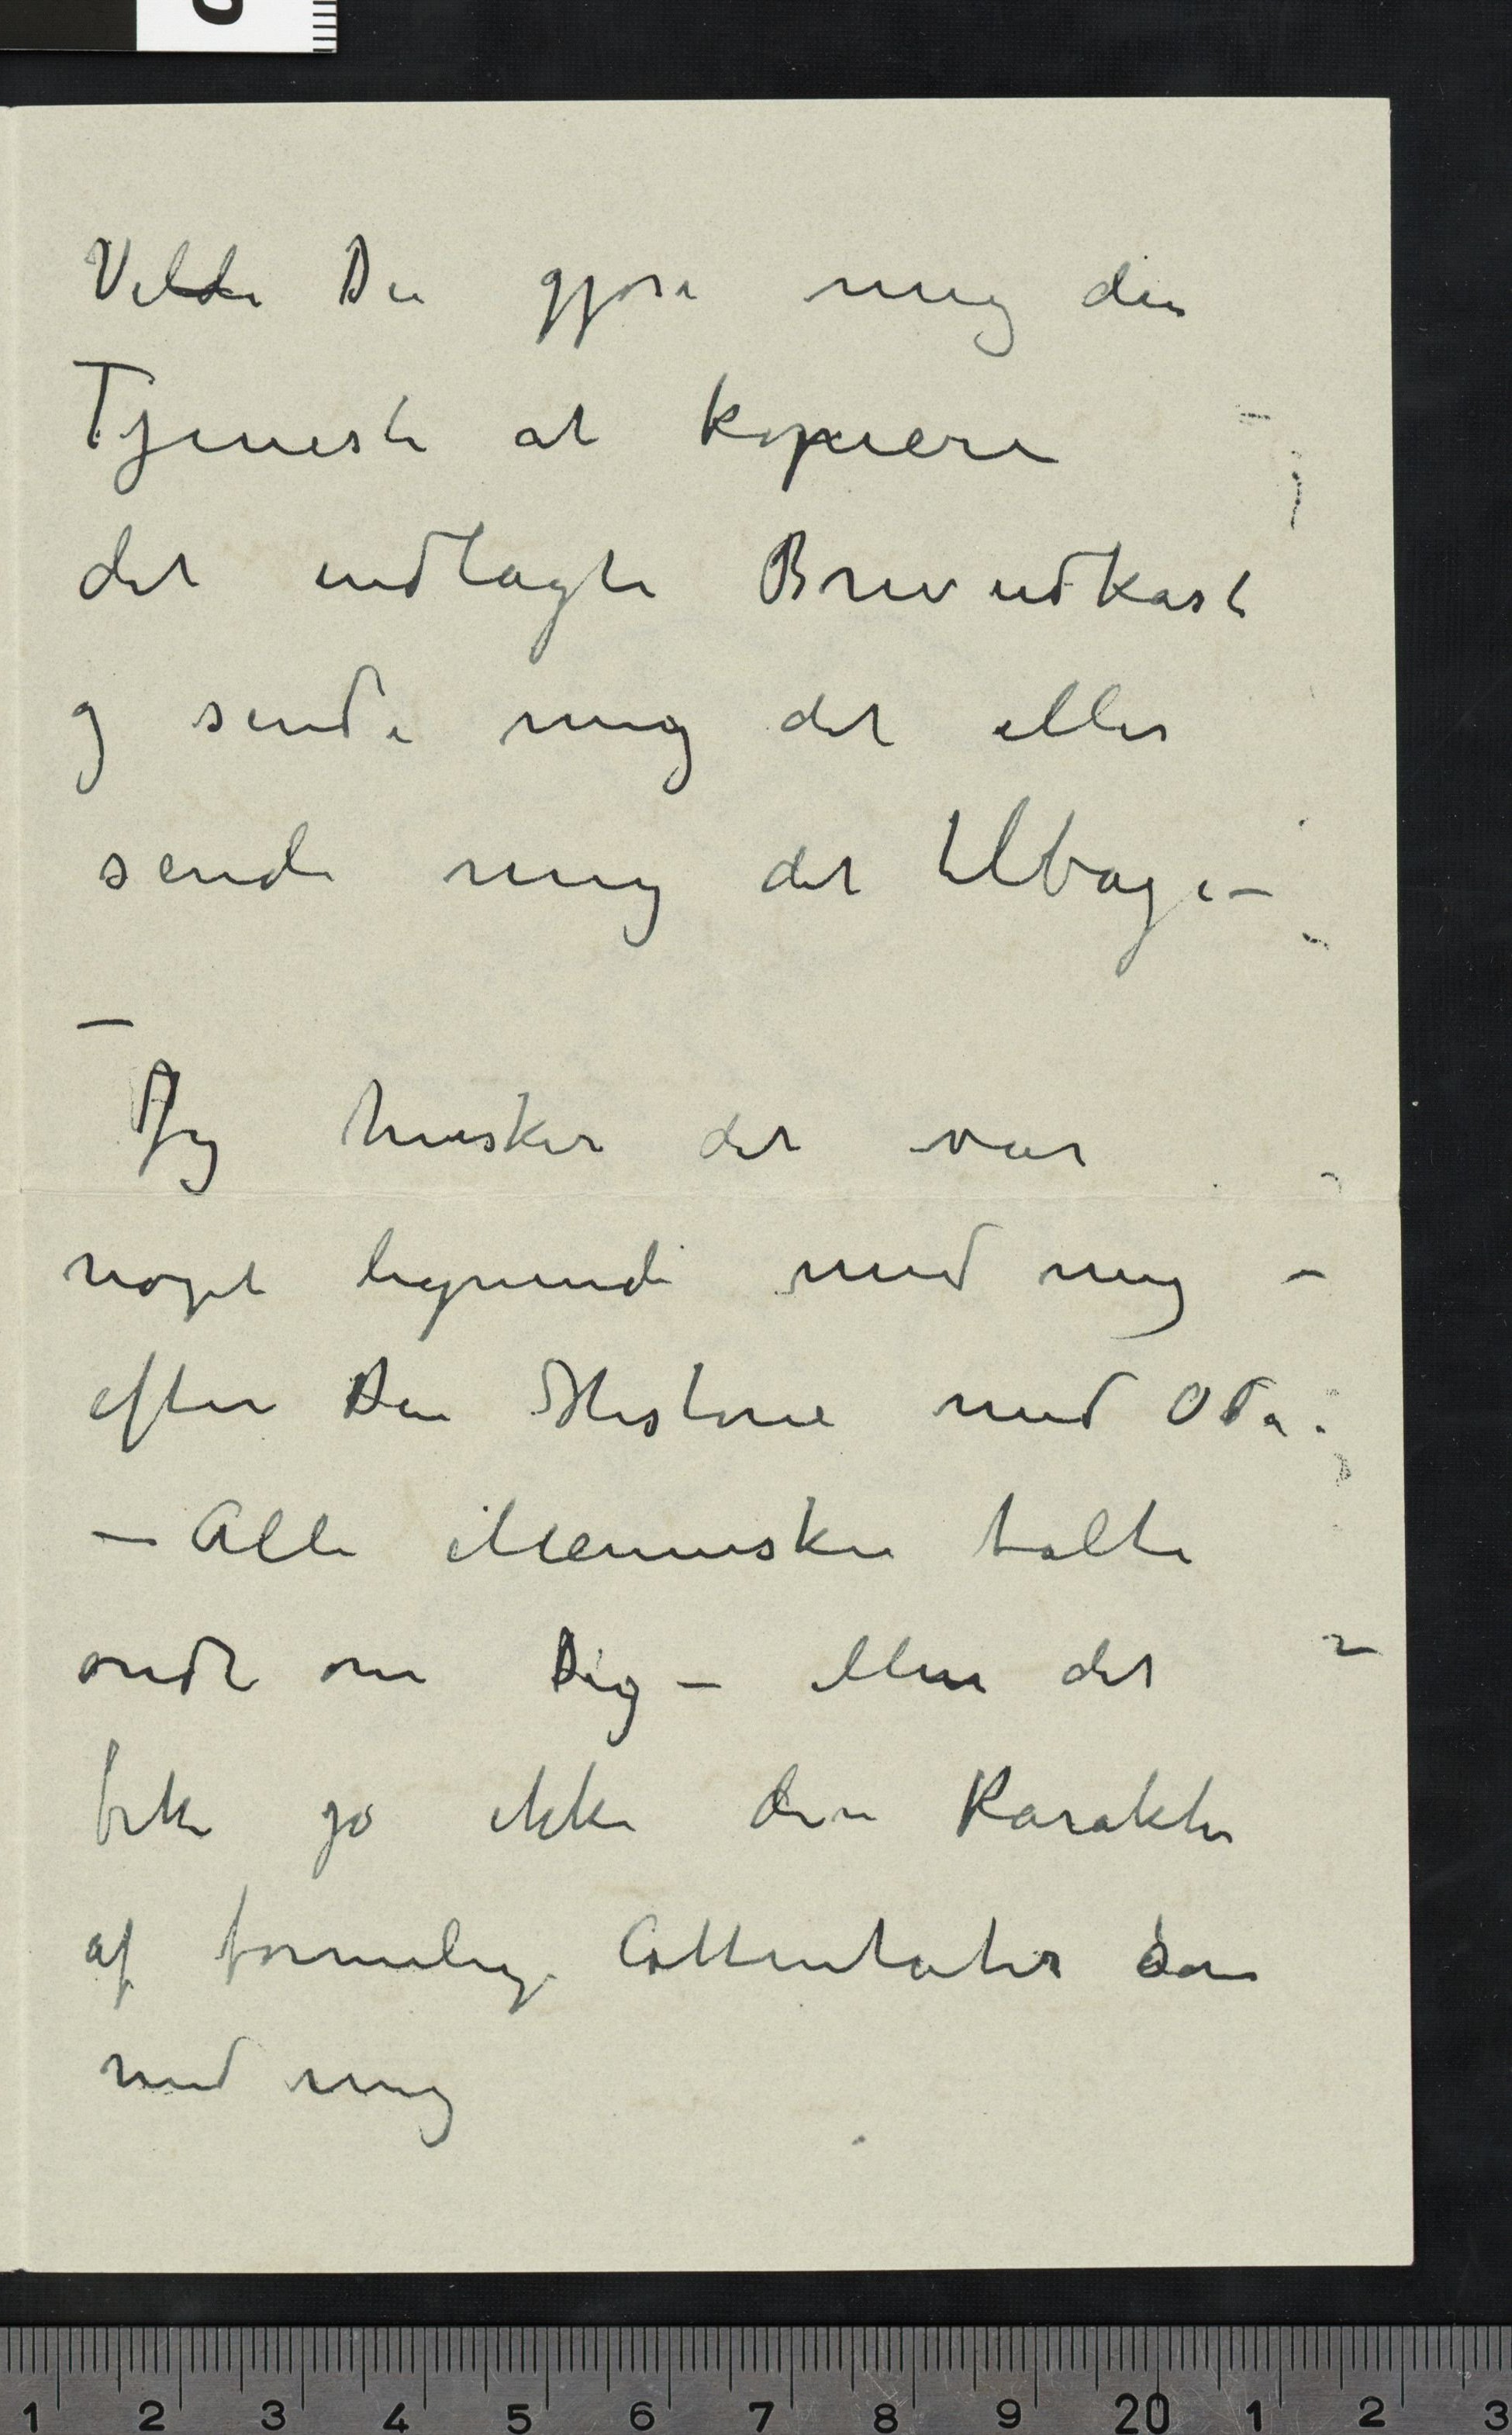 Vilde Du gjøre mig den
Tjeneste at kopiere
det indlagte Brevudkast
og sende mig det eller
sende mig det tilbage –
–
Jeg husker det var
noget lignende med mig –
efter Den Historie med Oda.
– Alle Mennesker talte
ondt om Dig – Men det
fik jo ikke den Karakter
af formelige Attentater som
med mig
1 2 3 4 5 6 7 8 9 20 1 2 3